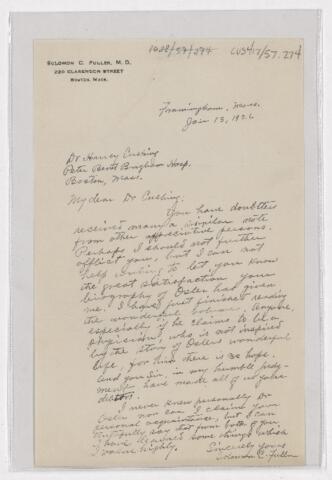 1928/57/274
CUS417/57.274
SOLOMON C. FULLER, M. D.
220 CLARENDON STREET
BOSTON, MASS.
Framingham, Mass.
Jan 13, 1926
Dr Harvey Cushing
Peter Bent Brigham Hosp.
Boston, Mass.
My dear Dr Cushing:
You have doubtless
received many a similar note
from other appreciative persons.
Perhaps I should not further
afflict you, but I can not
help wishing to let you know
the great satisfaction your
biography of Osler had given
me. I have just finished reading
the wonderful volume. Anyone,
especially if he claims to be a
physician, who is not inspired
by the story of Osler's wonderful
life, for him there is no hope.
And you Sir, in my humble judg-
ment have made all of us your
debtors.
I never knew personally Dr
Osler nor can I claim your
personal acquaintance, but I can
truthfully say that from both of you
I have learned some things which
I value highly.
Sincerely yours
Solomon C. Fuller